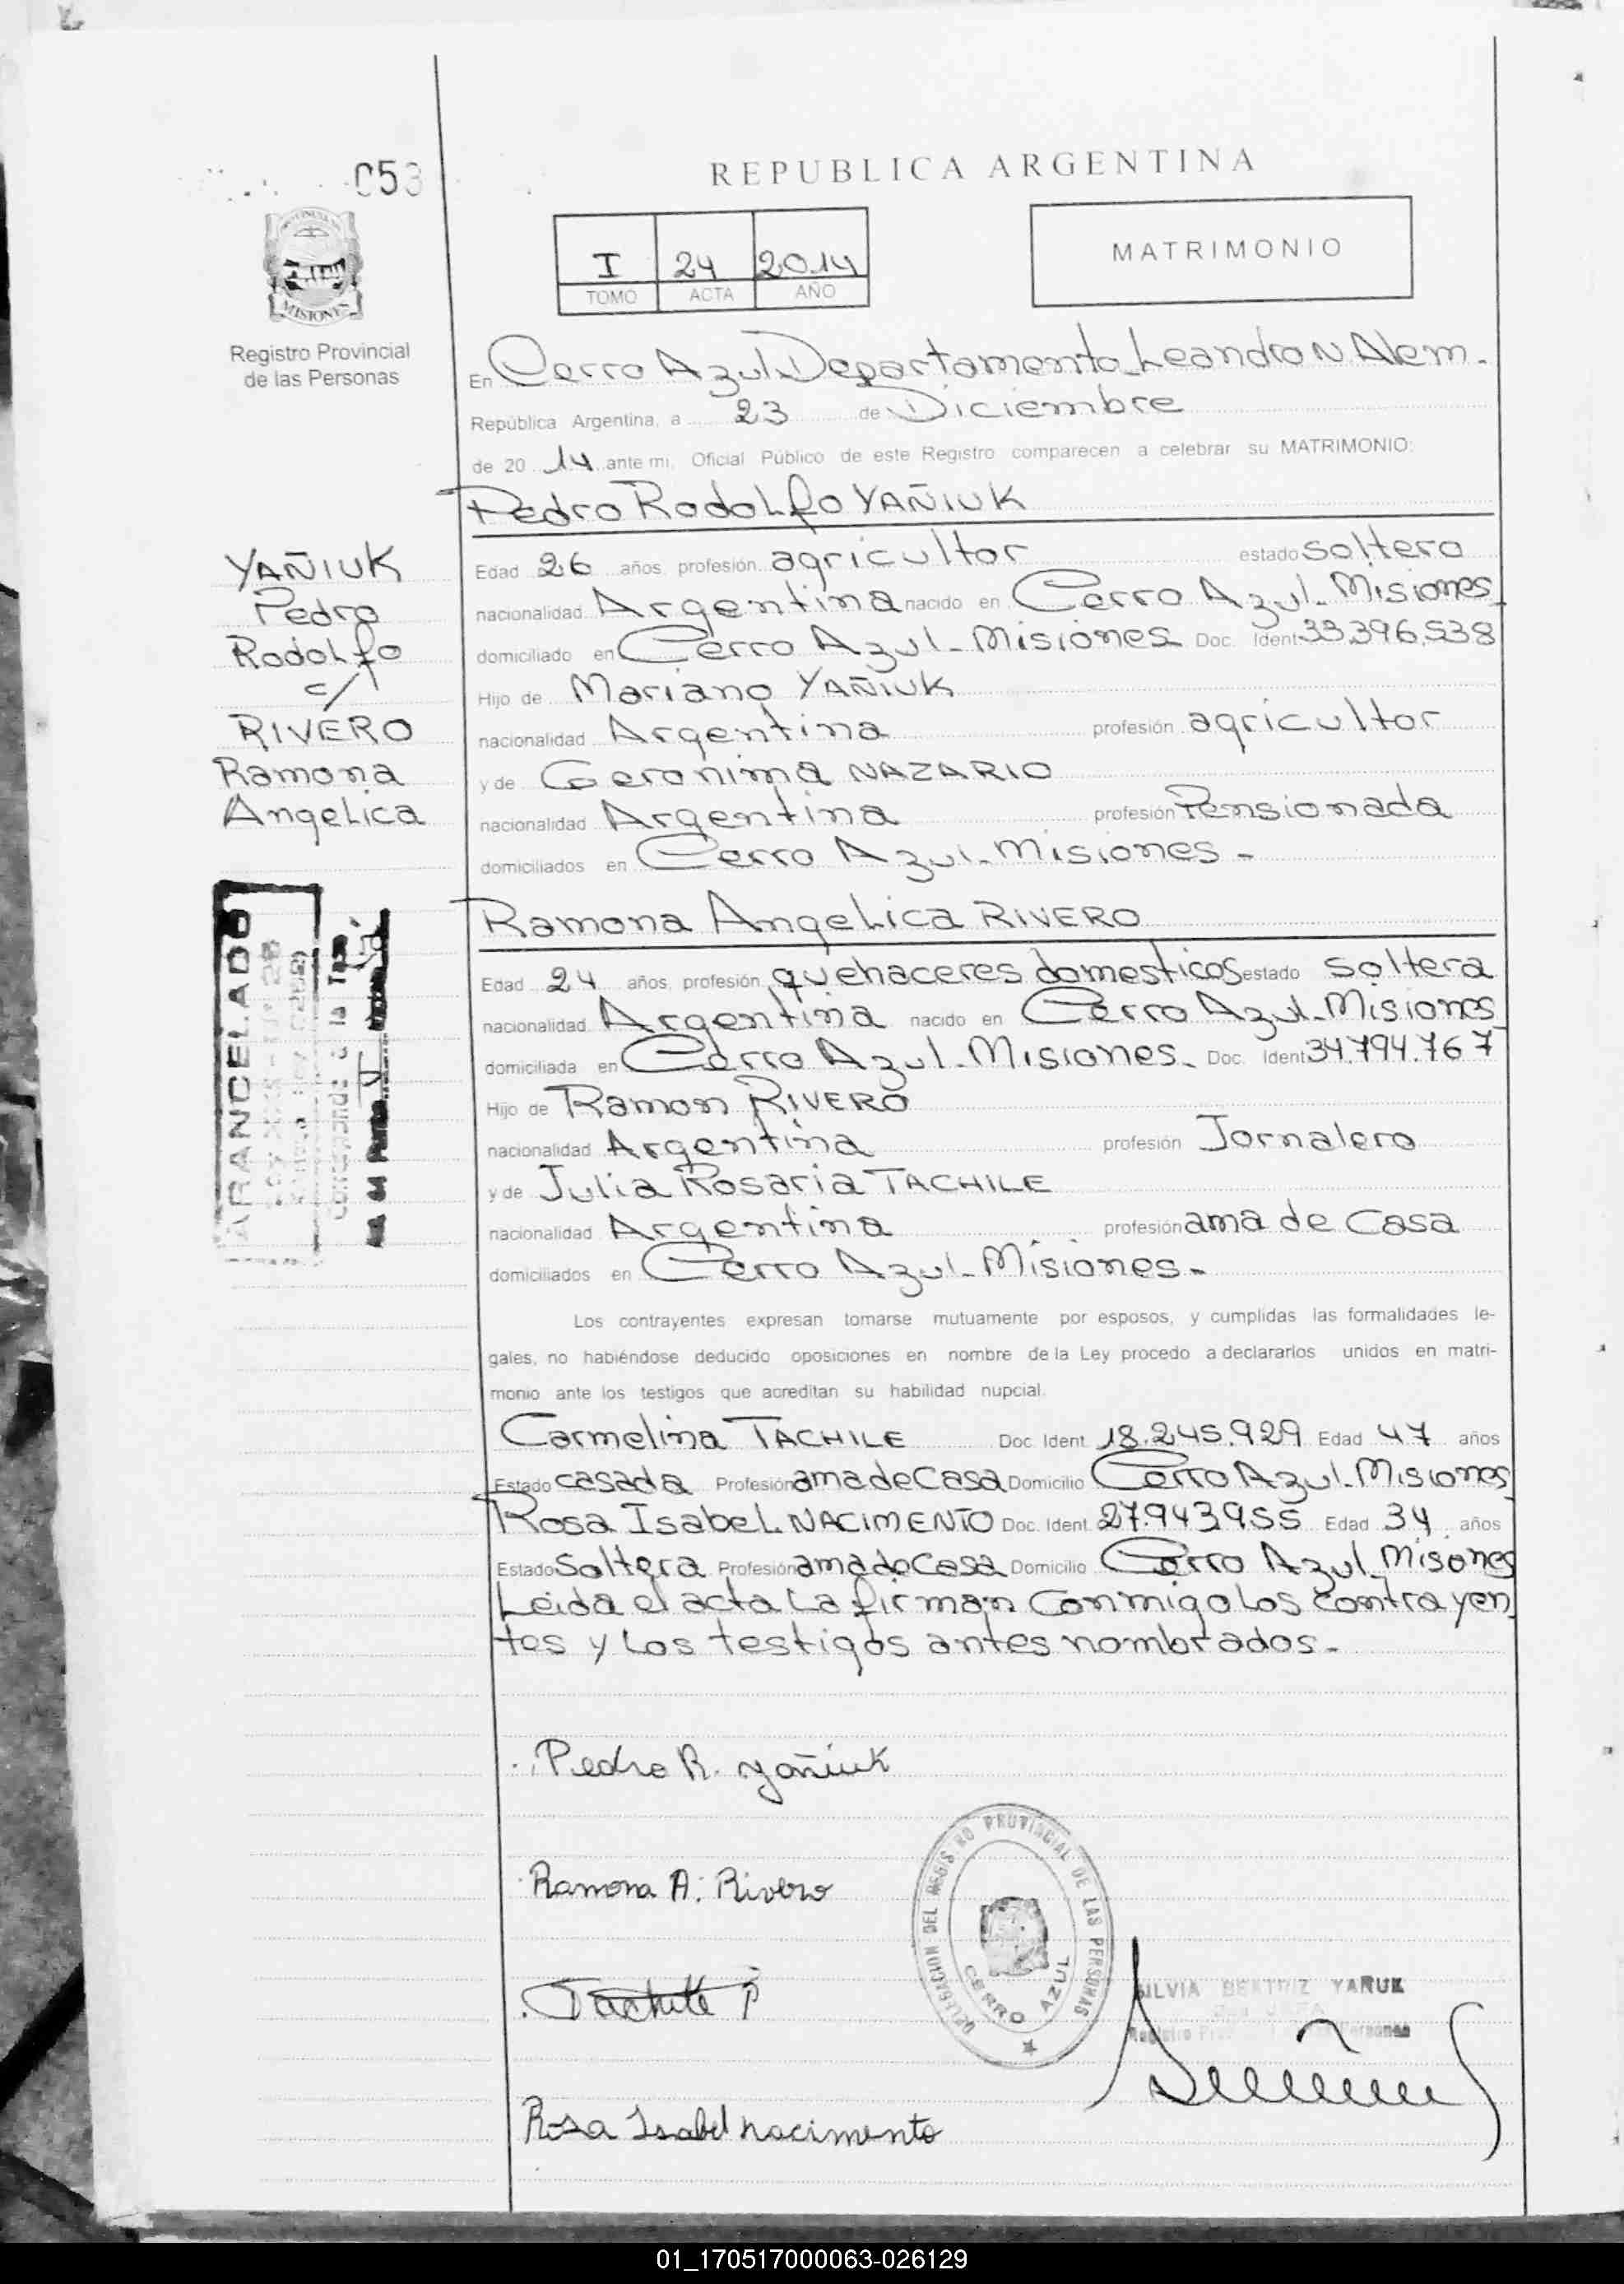 053
REPUBLICA ARGENTINA
I 24 2014
TOMO ACTA AÑO
MATRIMONIO
MISIONES
Registro Provincial
de las Personas
En Cerro Azul Departamento Leandro N. Alem.
República Argentina, a 23 de Diciembre
de 20 14 ante mi, Oficial Público de este Registro comparecen a celebrar su MATRIMONIO:
Pedro Rodolfo YAÑIUK
YAÑIUK
Pedro
Rodolfo
c/
RIVERO
Ramona
Angelica
Edad 26 años, profesión agricultor estado soltero
nacionalidad Argentina nacido en Cerro Azul - Misiones
domiciliado en Cerro Azul - Misiones Doc. Ident 33.396.538
Hijo de Mariano YAÑIUK
nacionalidad Argentina profesión agricultor
y de Geronima NAZARIO
nacionalidad Argentina profesión Pensionada
domiciliados en Cerro Azul - Misiones -
ARANCELADO
Ramona Angelica RIVERO
Edad 24 años, profesión quehaceres domesticos estado soltera
nacionalidad Argentina nacido en Cerro Azul - Misiones
domiciliada en Cerro Azul - Misiones - Doc. Ident 34.794.767
Hijo de Ramon RIVERO
nacionalidad Argentina profesión Jornalero
y de Julia Rosaria TACHILE
nacionalidad Argentina profesión ama de casa
domiciliados en Cerro Azul - Misiones -
Los contrayentes expresan tomarse mutuamente por esposos, y cumplidas las formalidades le-
gales, no habiéndose deducido oposiciones en nombre de la Ley procedo a declararlos unidos en matri-
monio ante los testigos que acreditan su habilidad nupcial.
Carmelina TACHILE Doc. Ident. 18.245.929 Edad 47 años
Estado casada Profesión ama de casa Domicilio Cerro Azul - Misiones
Rosa Isabel NACIMENTO Doc. Ident. 27.943.955 Edad 34 años
Estado Soltera Profesión ama de casa Domicilio Cerro Azul - Misones
Leida el acta la firman conmigo los contrayen
tes y los testigos antes nombrados -
Pedro R. Yañiuk
Ramona A. Rivero
DELEGACION DEL REGISTRO PROVINCIAL DE LAS PERSONAS
CERRO AZUL
SILVIA BEATRIZ YAÑUK
Rosa Isabel nacimento
01_170517000063-026129